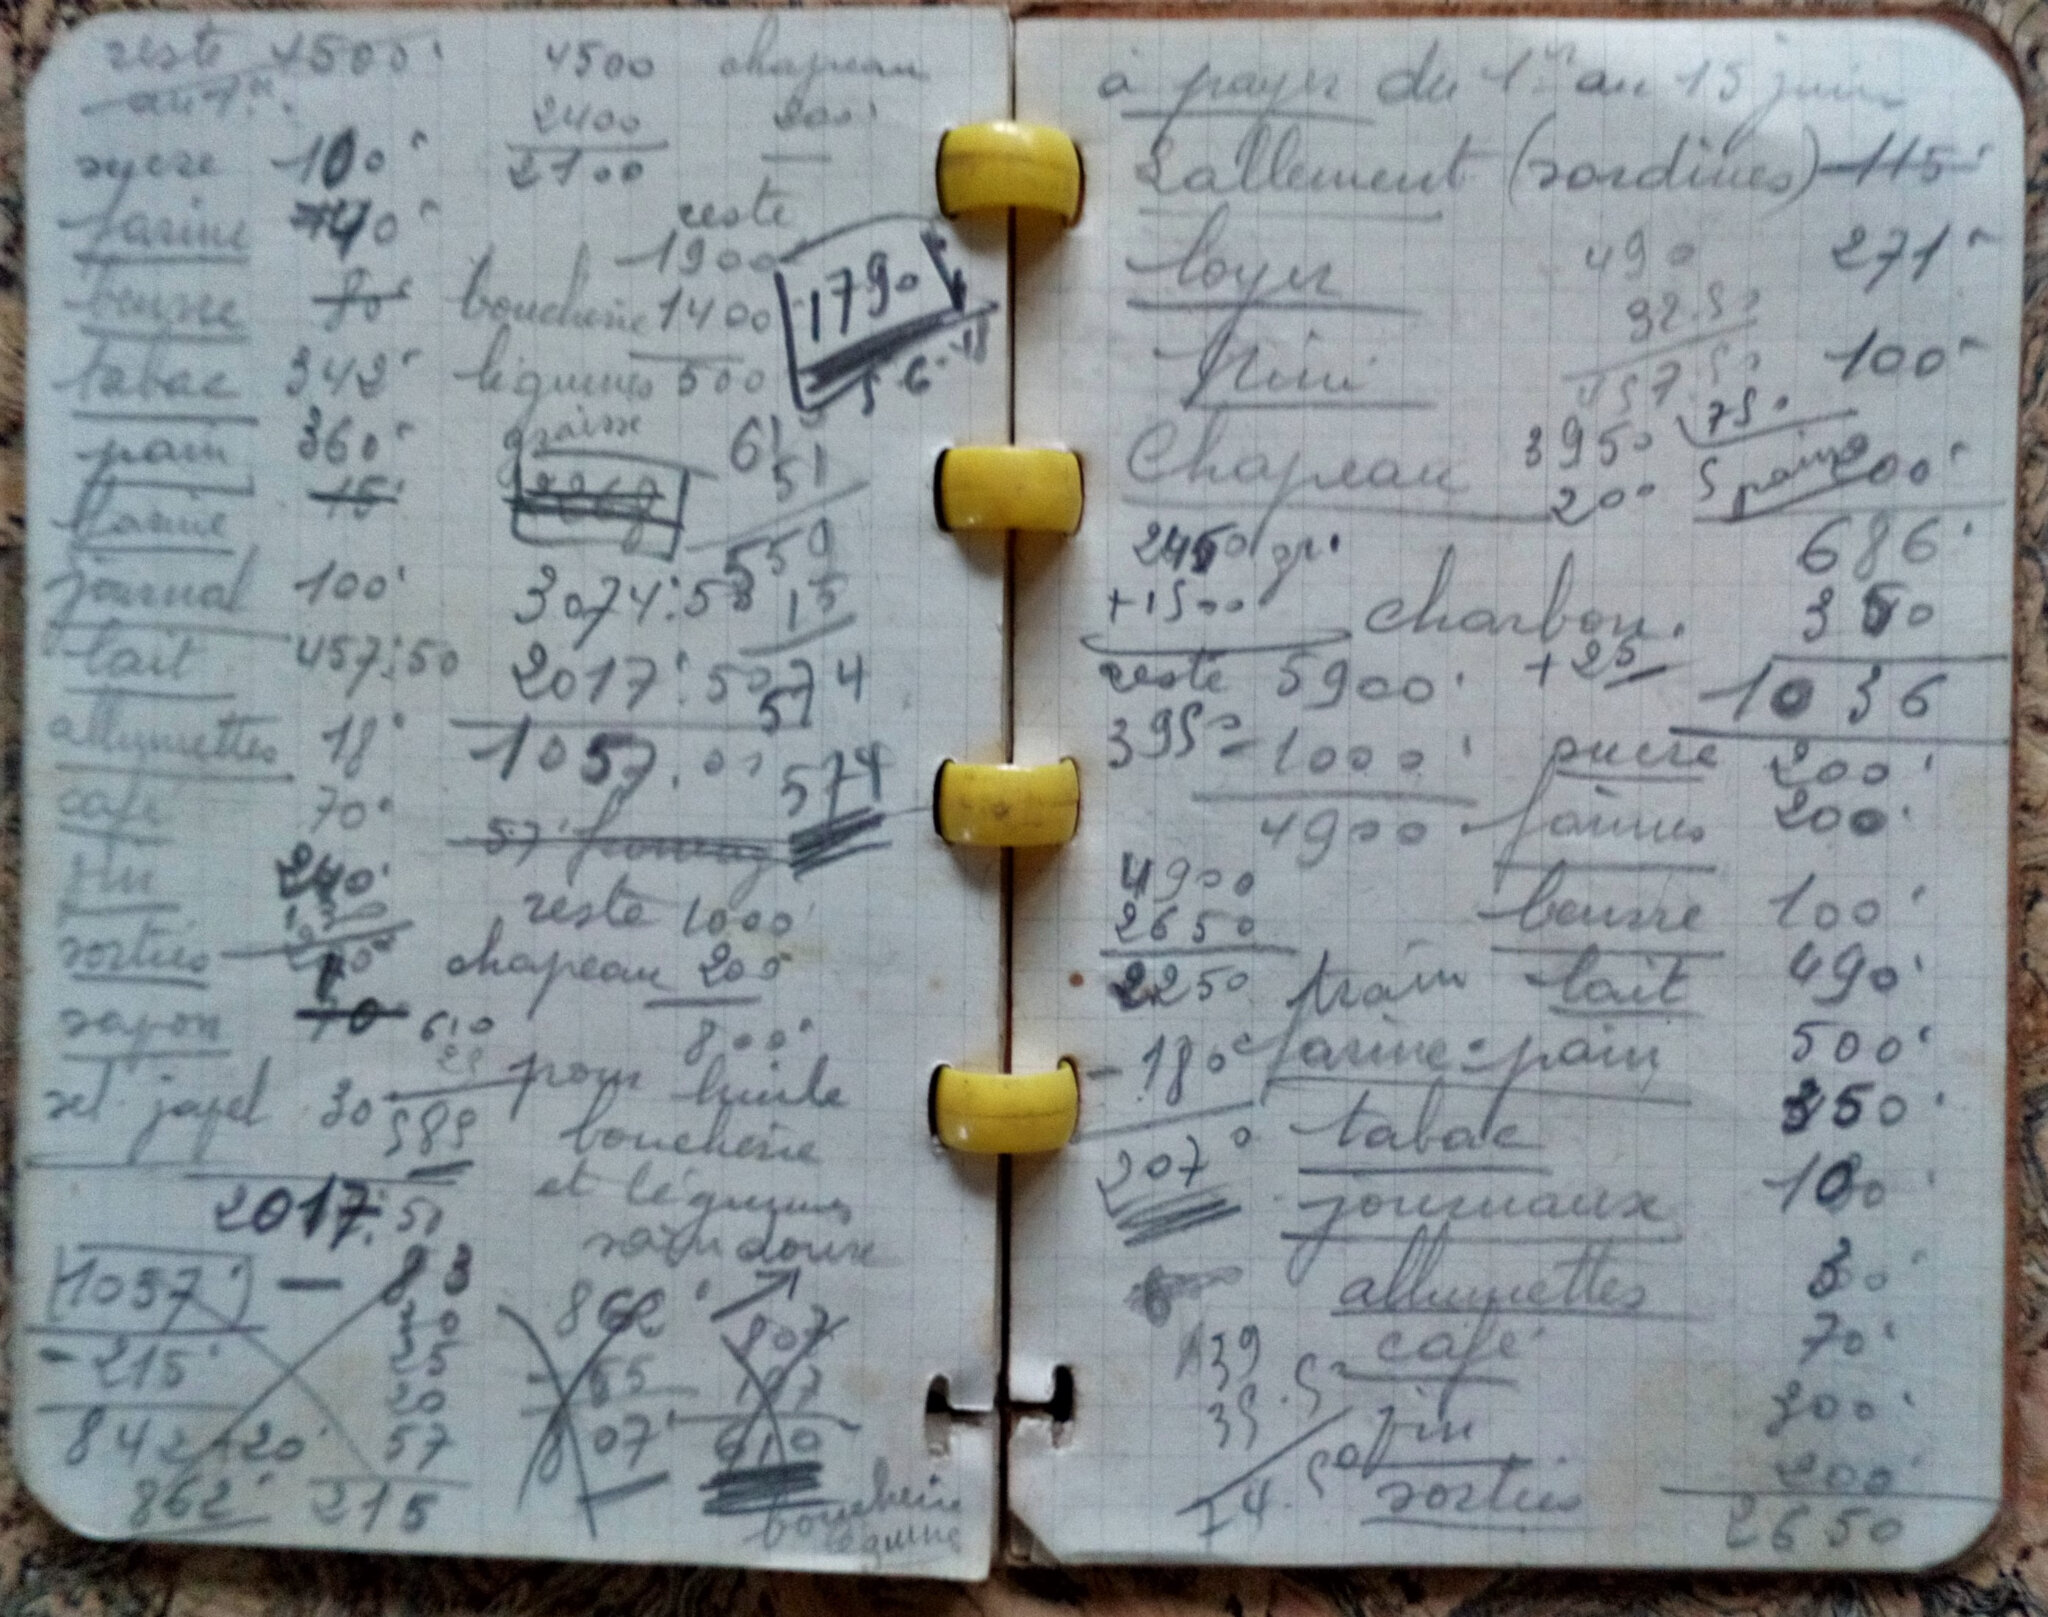 reste 4500
au 1er
sucre 100
farine 40
beurre 80
tabac 342
pain 360
farine 15
journal 100
lait 457:50
allumettes 18
café 70
vin 240
sorties
savon 70
sel 30
2017:50
1057 — 83
- 215
842 + 20
862
20
25
30
57
215
4500 chapeau
2400 200
2100
reste
1900
boucherie 1400
légumes 500
graisse
1790
5.6.
61
51
559
15
574
574
3074:50
2017:50
1057.00
57
reste 1000
chapeau 200
800
610
25
585
pour huile
boucherie
et légumes
saindoux
862
- 55
807
807
197
610
boucherie
légume
à payer du 1er au 15 juin
Lallement (sardines) 115
loyer 271
490
32.50
457.50
100
chapeau 200
3950 750
200 5 pains
686
2450 gr.
+1500
charbon. 350
+25
1036
reste 5900
3950 - 1000
4900
sucre 200
farines 200
beurre 100
4900
2650
2250
pain lait 490
- 180 farine-pain 500
2070
tabac 350
journaux 100
allumettes 30
café 70
139
35.50
74.50
vin 300
sorties 200
2650